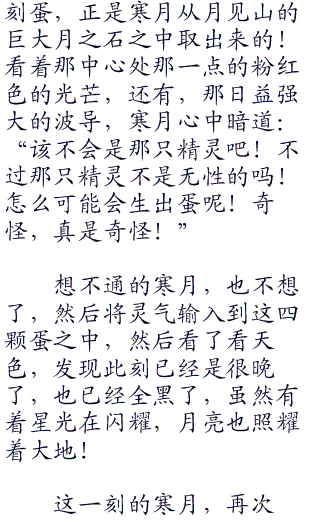 刻蛋，正是寒月从月见山的
巨大月之石之中取出来的！
看着那中心处那一点的粉红
色的光芒，还有，那日益强
大的波导，寒月心中暗道：
“该不会是那只精灵吧！不
过那只精灵不是无性的吗！
怎么可能会生出蛋呢！奇
怪，真是奇怪！”
想不通的寒月，也不想
了，然后将灵气输入到这四
颗蛋之中，然后看了看天
色，发现此刻已经是很晚
了，也已经全黑了，虽然有
着星光在闪耀，月亮也照耀
着大地！
这一刻的寒月，再次